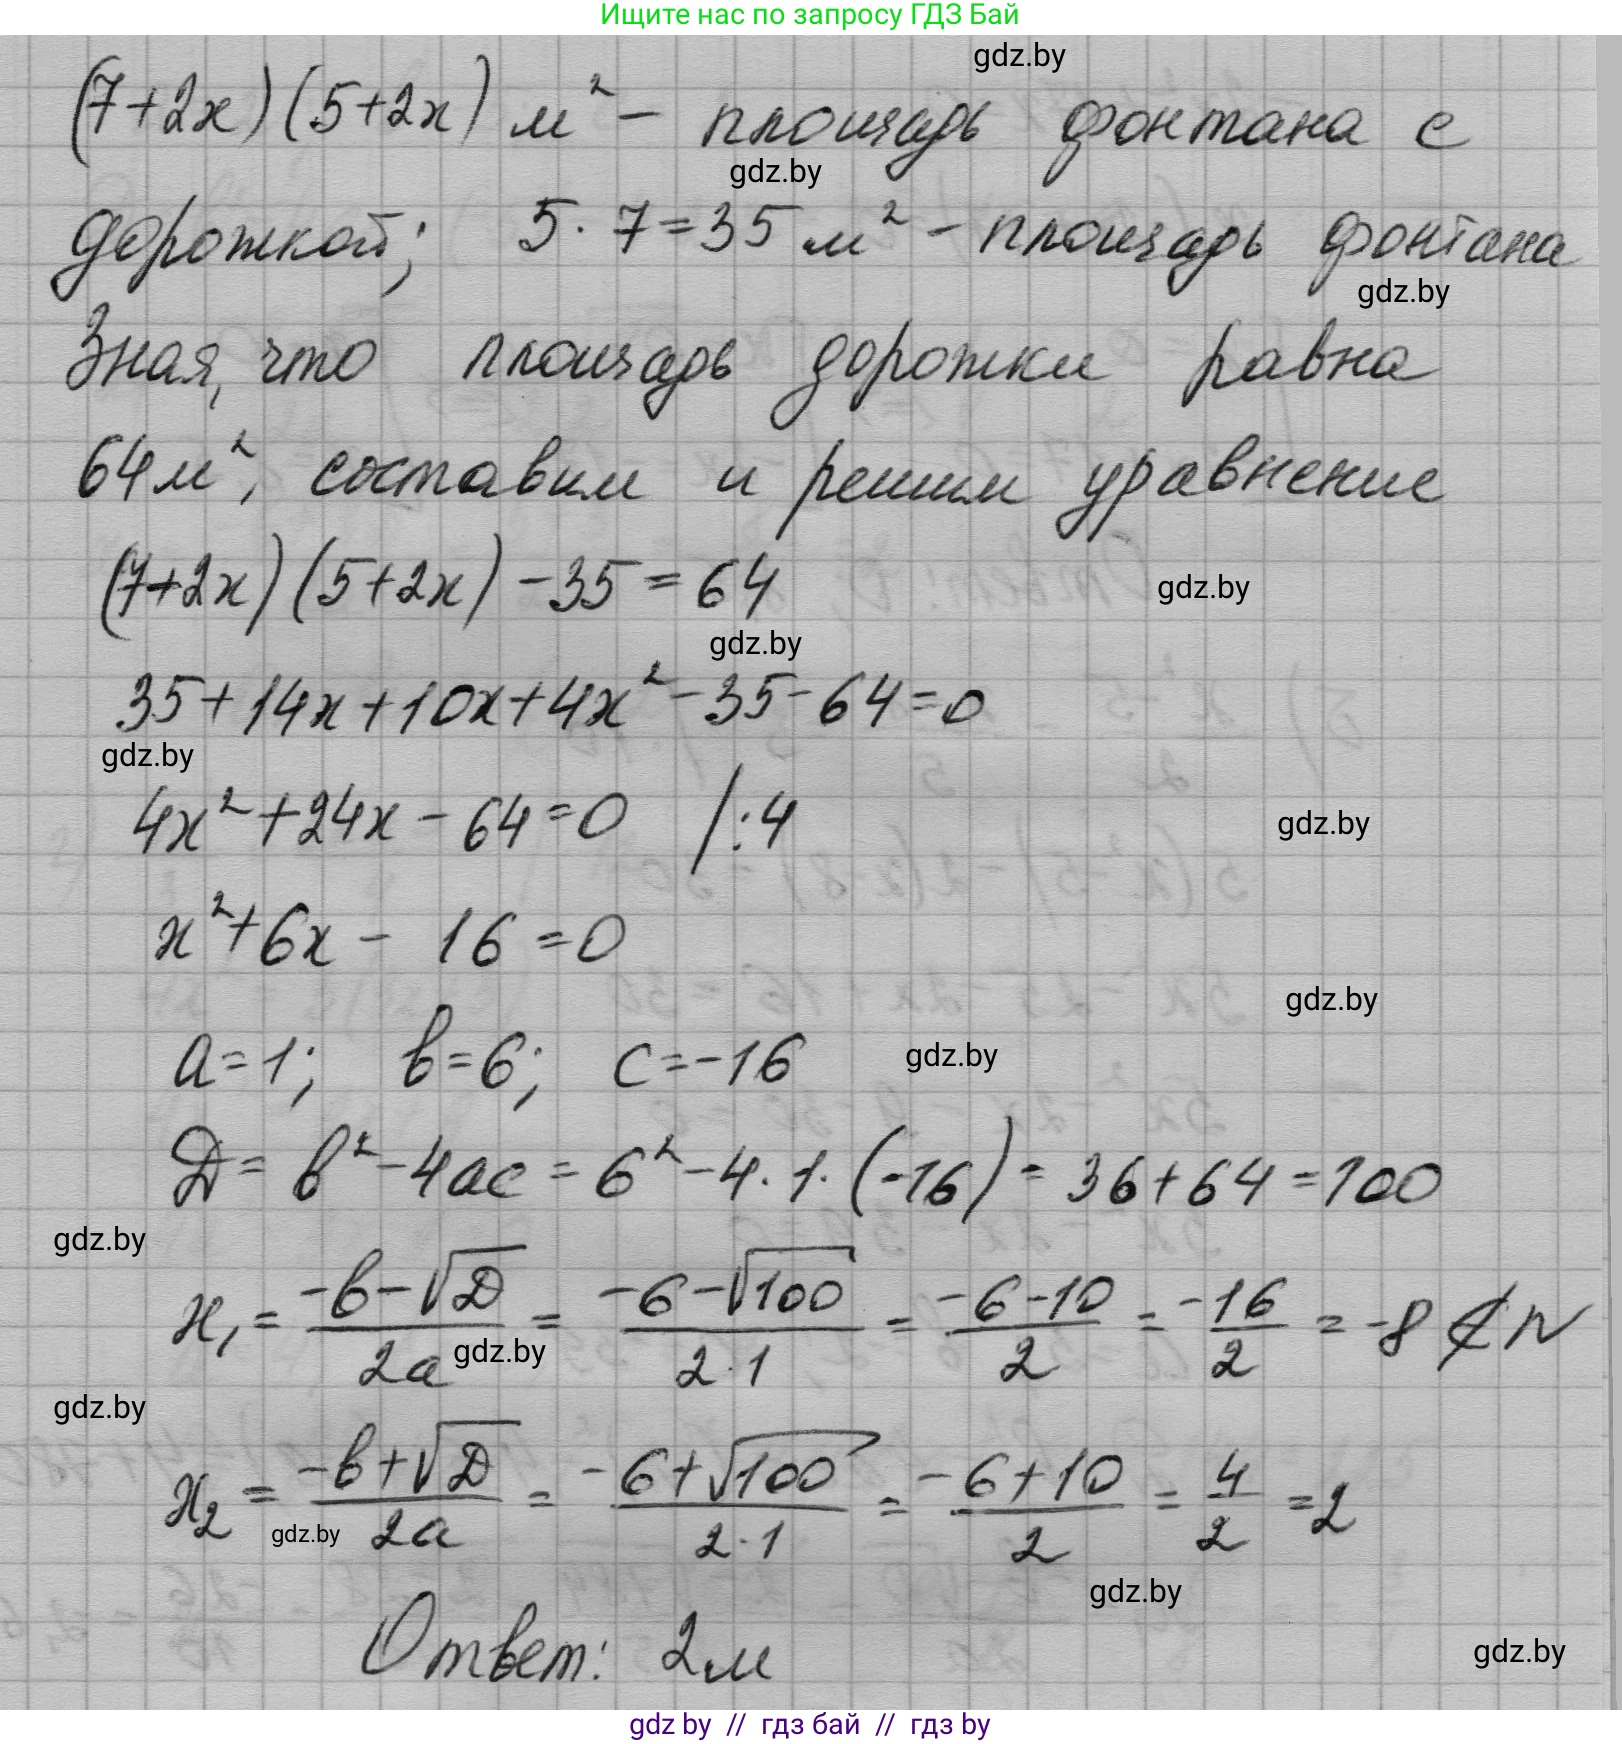 Ищите нас по запросу ГДЗ Бай
gdz.by
(7+2x)(5+2x) м² – площадь фонтана с
gdz.by
дорожкой; 5·7=35 м² – площадь фонтана
gdz.by
Зная, что площадь дорожки равна
64м², составим и решим уравнение
(7+2x)(5+2x)–35=64
gdz.by
gdz.by
35+14x+10x+4x²–35–64=0
gdz.by
4x²+24x–64=0 /:4
gdz.by
x²+6x–16=0
gdz.by
a=1; b=6; c=–16
gdz.by
D=b²–4ac=6²–4·1·(–16)=36+64=100
gdz.by
x₁ = (–b–√D)/(2a) = (–6–√100)/(2·1) = (–6–10)/2 = –16/2 = –8 ∉ N
gdz.by
gdz.by
x₂ = (–b+√D)/(2a) = (–6+√100)/(2·1) = (–6+10)/2 = 4/2 = 2
gdz.by
gdz.by
Ответ: 2м
gdz.by
gdz by // гдз бай // гдз by